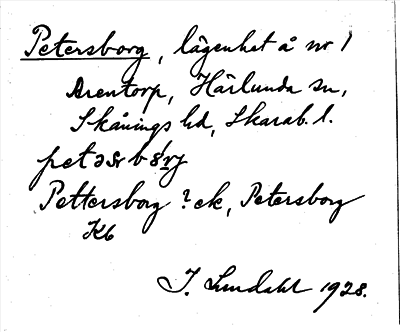 Petersborg, lägenhet å nr 1
Arentorp, Härlunda sn,
Skånings hd, Skarab. l.
Pettersborg ? ek, Petersborg
Kb
J. Lundahl 1928.